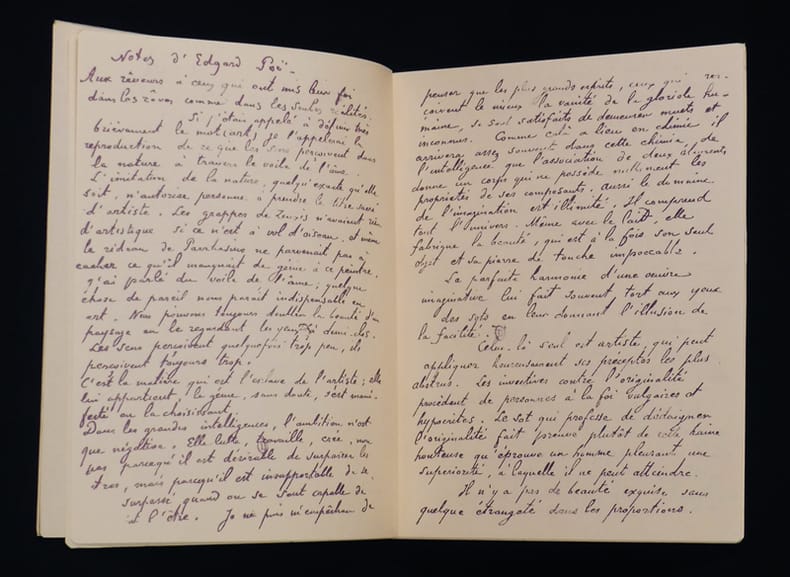 Notes d'Edgard Poë -
Aux rêveurs à ceux qui ont mis leur foi
dans les rêves comme dans les seules réalités.
Si j'étais appelé à définir très
brièvement le mot (art) je l'appelerai la
reproduction de ce que les sens perçoivent dans
la nature à travers le voile de l'âme.
L'imitation de la nature, quelqu'exacte qu'elle
soit, n'autorise personne à prendre le titre sacré
d'artiste. Les grappes de Zeuxis n'avaient rien
d'artistique si ce n'est à vol d'oiseau, et même
le rideau de Parrhasius ne parvenait pas à
cacher ce qu'il manquait de génie à ce peintre.
J'ai parlé du voile de l'âme; quelque
chose de pareil nous parait indispensable en
art. Nous pouvons toujours doubler la beauté d'un
paysage en le regardant les yeux à demi-clos.
Les sens perçoivent quelquefois trop peu, ils
perçoivent toujours trop.
C'est la matière qui est l'esclave de l'artiste; elle
lui appartient, le génie, sans doute, s'est mani-
festé en la choisissant.
Dans les grandes intelligences, l'ambition n'est
que négative. Elle lutte, travaille, crée, non
pas parcequ'il est désirable de surpasser les
autres, mais parcequ'il est insupportable de se
surpassé, quand on se sent capable de
l'être. Je ne puis m'empêcher de
penser que les plus grands esprits, ceux qui per-
çoivent le mieux la vanité de la gloriole hu-
maine, se sont satisfaits de demeurer muets et
inconnus. Comme celà a lieu en chimie il
arrivera assez souvent dans cette chimie de
l'intelligence que l'association de deux éléments
donne un corps qui ne possède nullement les
propriétés de ses composants. aussi le domaine
de l'imagination est illimité. Il comprend
tout l'univers. Même avec le laid, elle
fabrique la beauté, qui est à la fois son seul
objet et sa pierre de touche impeccable.
La parfaite harmonie d'une œuvre
imaginative lui fait souvent, tort aux yeux
des sots en leur donnant l'illusion de
la facilité.
Celui-là seul est artiste, qui peut
appliquer heureusement ses préceptes les plus
abstrus. Les invectives contre l'originalité
procèdent de personnes à la foi vulgaires et
hypocrites. Le sot qui professe de dédaigner
l'originalité fait preuve plutôt de cette haine
honteuse qu'éprouve un homme pleurant, une
superiorité, à laquelle il ne peut atteindre.
Il n'y a pas de beauté exquise sans
quelque étrangeté dans les proportions.